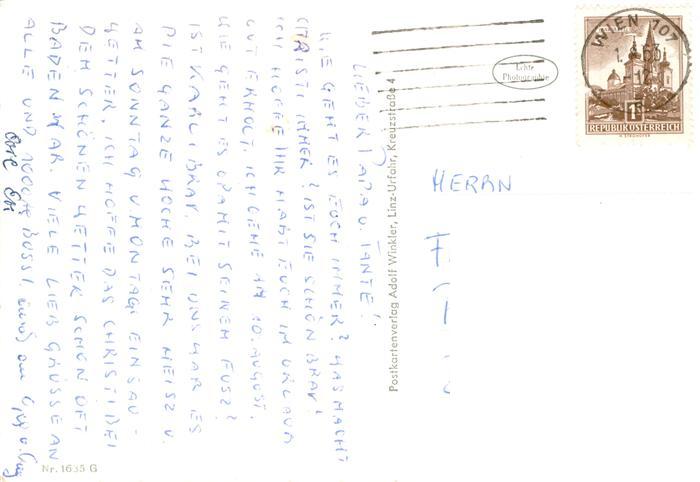 LIEBER PAPA U. TANTE!
WIE GEHT ES EUCH IMMER? WAS MACHT
CHRISTI IMMER? IST SIE SCHÖN BRAV?
ICH HOFFE IHR HABT EUCH IM URLAUB
GUT ERHOLT. ICH GEHE AM 10. AUGUST.
WIE GEHT ES OPA MIT SEINEM FUSZ?
IST KARLI BRAV. BEI UNS WAR ES
DIE GANZE WOCHE SEHR HEISZ U.
AM SONNTAG U MONTAG EINSAU-
WETTER, ICH HOFFE DAS CHRISTI BEI
DEM SCHÖNEN WETTER SCHÖN OFT
BADEN WAR. VIELE LIEBE GRÜSSE AN
ALLE UND
Nr. 1635 G
Postkartenverlag Adolf Winkler, Linz-Urfahr, Kreuzstraße 4
Echte
Photographie
WIEN 107
REPUBLIK ÖSTERREICH
1 S
HERRN